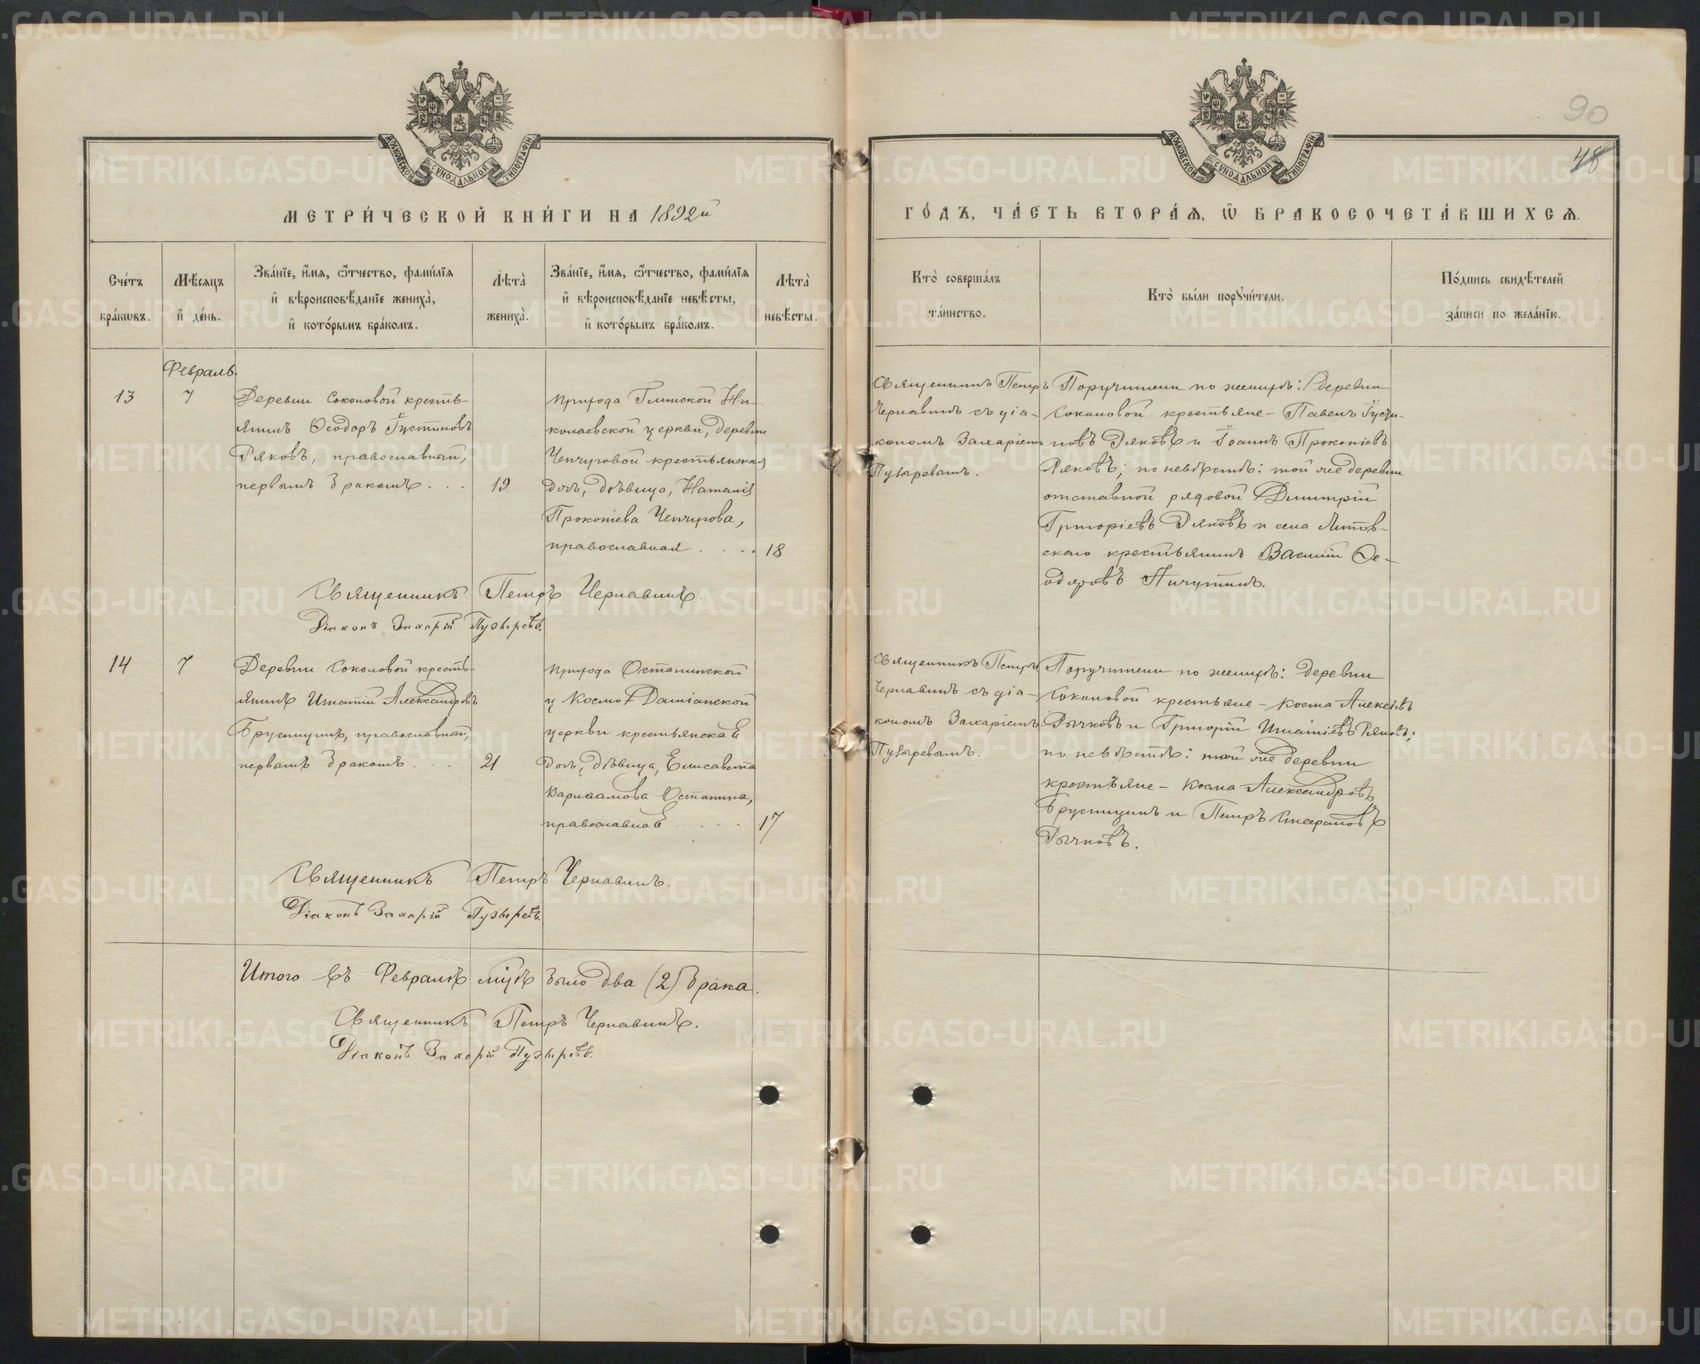 90
48
МЕТРИ́ЧЕСКОЙ КНИ́ГИ НА 1892й
ГО́ДЪ, ЧА́СТЬ ВТОРА́Я, Ѽ БРАКОСОЧЕТА́ВШИХСЯ.
Сче́тъ бра́ковъ.
Мѣ́сяцъ и де́нь.
Зва́нїе, и́мя, ѻ́тчество, фами́лїя и вѣроисповѣ́данїе жениха̀, и кото́рымъ бра́комъ.
Лѣта̀ жениха̀.
Зва́нїе, и́мя, ѻ́тчество, фами́лїя и вѣроисповѣ́данїе невѣ́сты, и кото́рымъ бра́комъ.
Лѣта̀ невѣ́сты.
Кто̀ соверша́лъ та́инство.
Кто̀ бы́ли порꙋчи́тели.
По́дпись свидѣ́телей за́писи по жела́нїю.
Февраль.
13
7
Деревни Соколовой кресть-
янинъ Ѳеодоръ Іустиновъ
Ряковъ, православный,
первымъ бракомъ . . . 19
Прихода Глинской Ни-
колаевской церкви, деревни
Чепчуговой крестьянская
дочь, дѣвица, Наталія
Прокопіева Чепчугова,
православная . . . . 18
Священникъ Петръ
Чернавинъ съ діа-
кономъ Захаріемъ
Пузыревымъ.
Поручители по женихѣ: деревни
Соколовой крестьяне – Павелъ Іусти-
новъ Ряковъ и Іоаннъ Прокопіевъ
Ряковъ; по невѣстѣ: той же деревни
отставной рядовой Димитрій
Григоріевъ Ряковъ и села Литов-
скаго крестьянинъ Василій Ѳе-
одоровъ Пичугинъ.
Священникъ Петръ Чернавинъ.
Діаконъ Захарій Пузыревъ.
14
7
Деревни Соколовой кресть-
янинъ Игнатій Александровъ
Брусницынъ, православный,
первымъ бракомъ . . . . 21
Прихода Останинской
Космо-Даміанской
церкви крестьянская
дочь, дѣвица, Елисавета
Варлаамова Останина,
православная . . . . 17
Священникъ Петръ
Чернавинъ съ діа-
кономъ Захаріемъ
Пузыревымъ.
Поручители по женихѣ: деревни
Соколовой крестьяне – Косма Алексіевъ
Рычковъ и Григорій Игнатіевъ Ряковъ;
по невѣстѣ: той же деревни
крестьяне – Косма Александровъ
Брусницынъ и Петръ Стефановъ
Рычковъ.
Священникъ Петръ Чернавинъ.
Діаконъ Захарій Пузыревъ.
Итого въ Февралѣ мцѣ было два (2) брака.
Священникъ Петръ Чернавинъ.
Діаконъ Захарій Пузыревъ.
METRIKI.GASO-URAL.RU